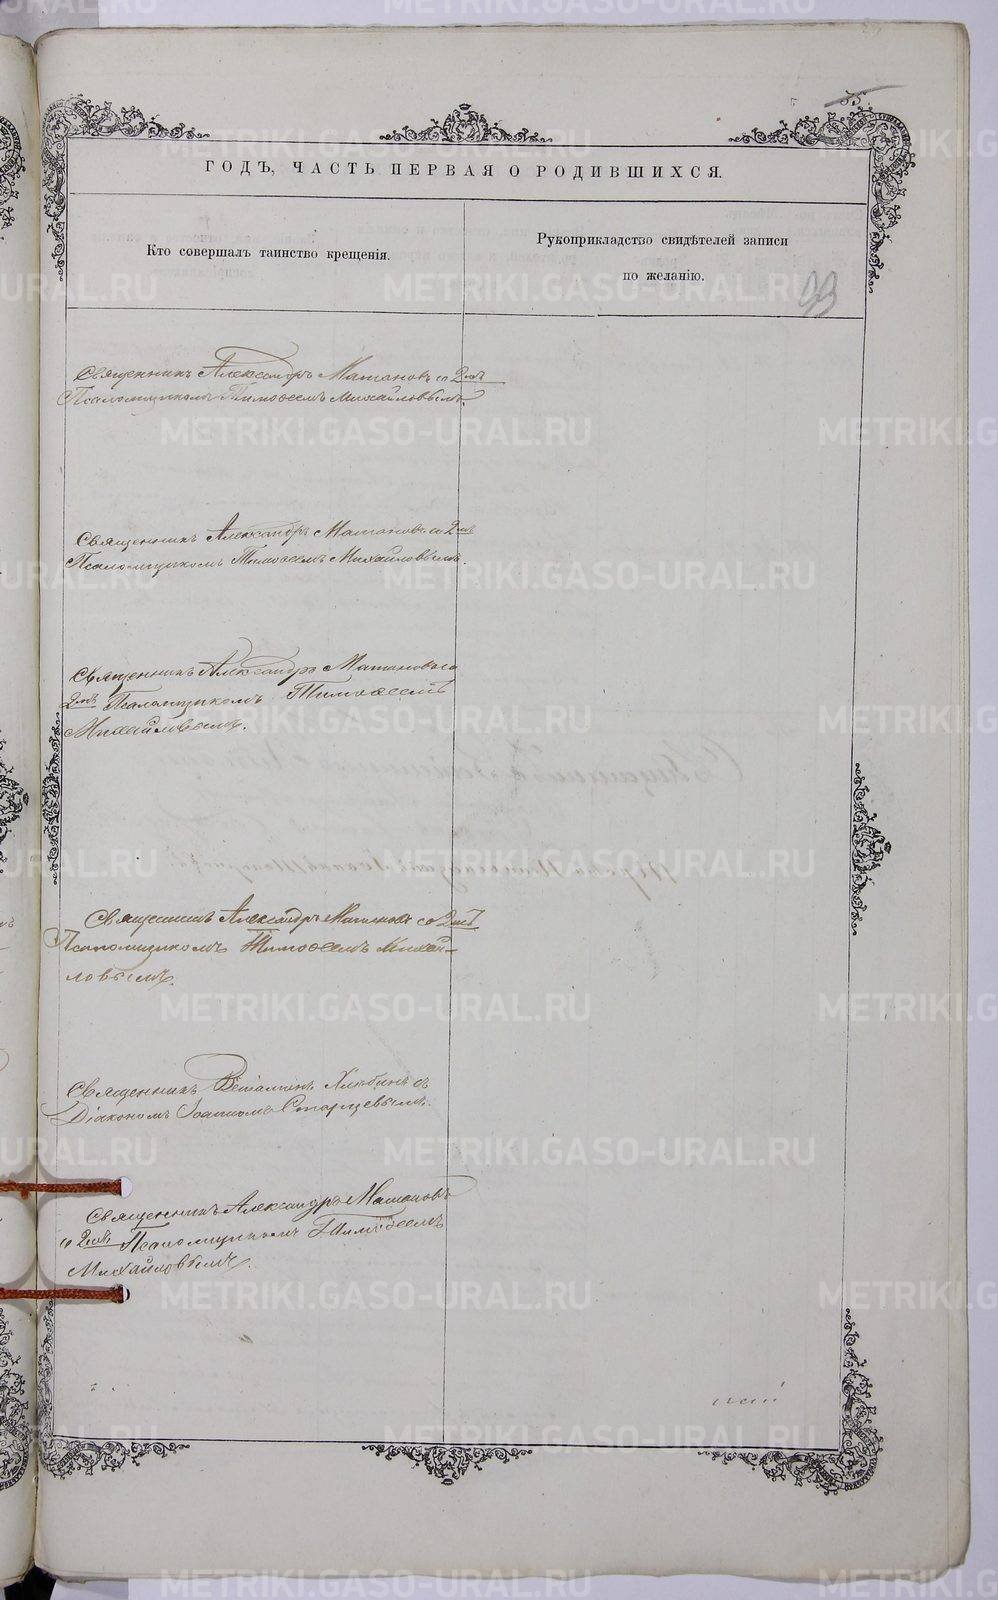 35.
ГОДЪ, ЧАСТЬ ПЕРВАЯ О РОДИВШИХСЯ.
Кто совершалъ таинство крещенія.
Рукоприкладство свидѣтелей записи
по желанію.
Священникъ Александръ Матановъ со 2мъ
Псаломщикомъ Тимофеемъ Михайловымъ.
Священникъ Александръ Матановъ со 2мъ
Псаломщикомъ Тимофеемъ Михайловымъ.
Священникъ Александръ Матановъ со
2мъ Псаломщикомъ Тимофеемъ
Михайловымъ.
Священникъ Александръ Матановъ со 2мъ
Псаломщикомъ Тимофеемъ Михай-
ловымъ.
Священникъ Веніаминъ Хлѣбинъ съ
Діакономъ Іоанномъ Старцевымъ.
Священникъ Александръ Матановъ
со 2мъ Псаломщикомъ Тимофеемъ
Михайловымъ.
METRIKI.GASO-URAL.RU